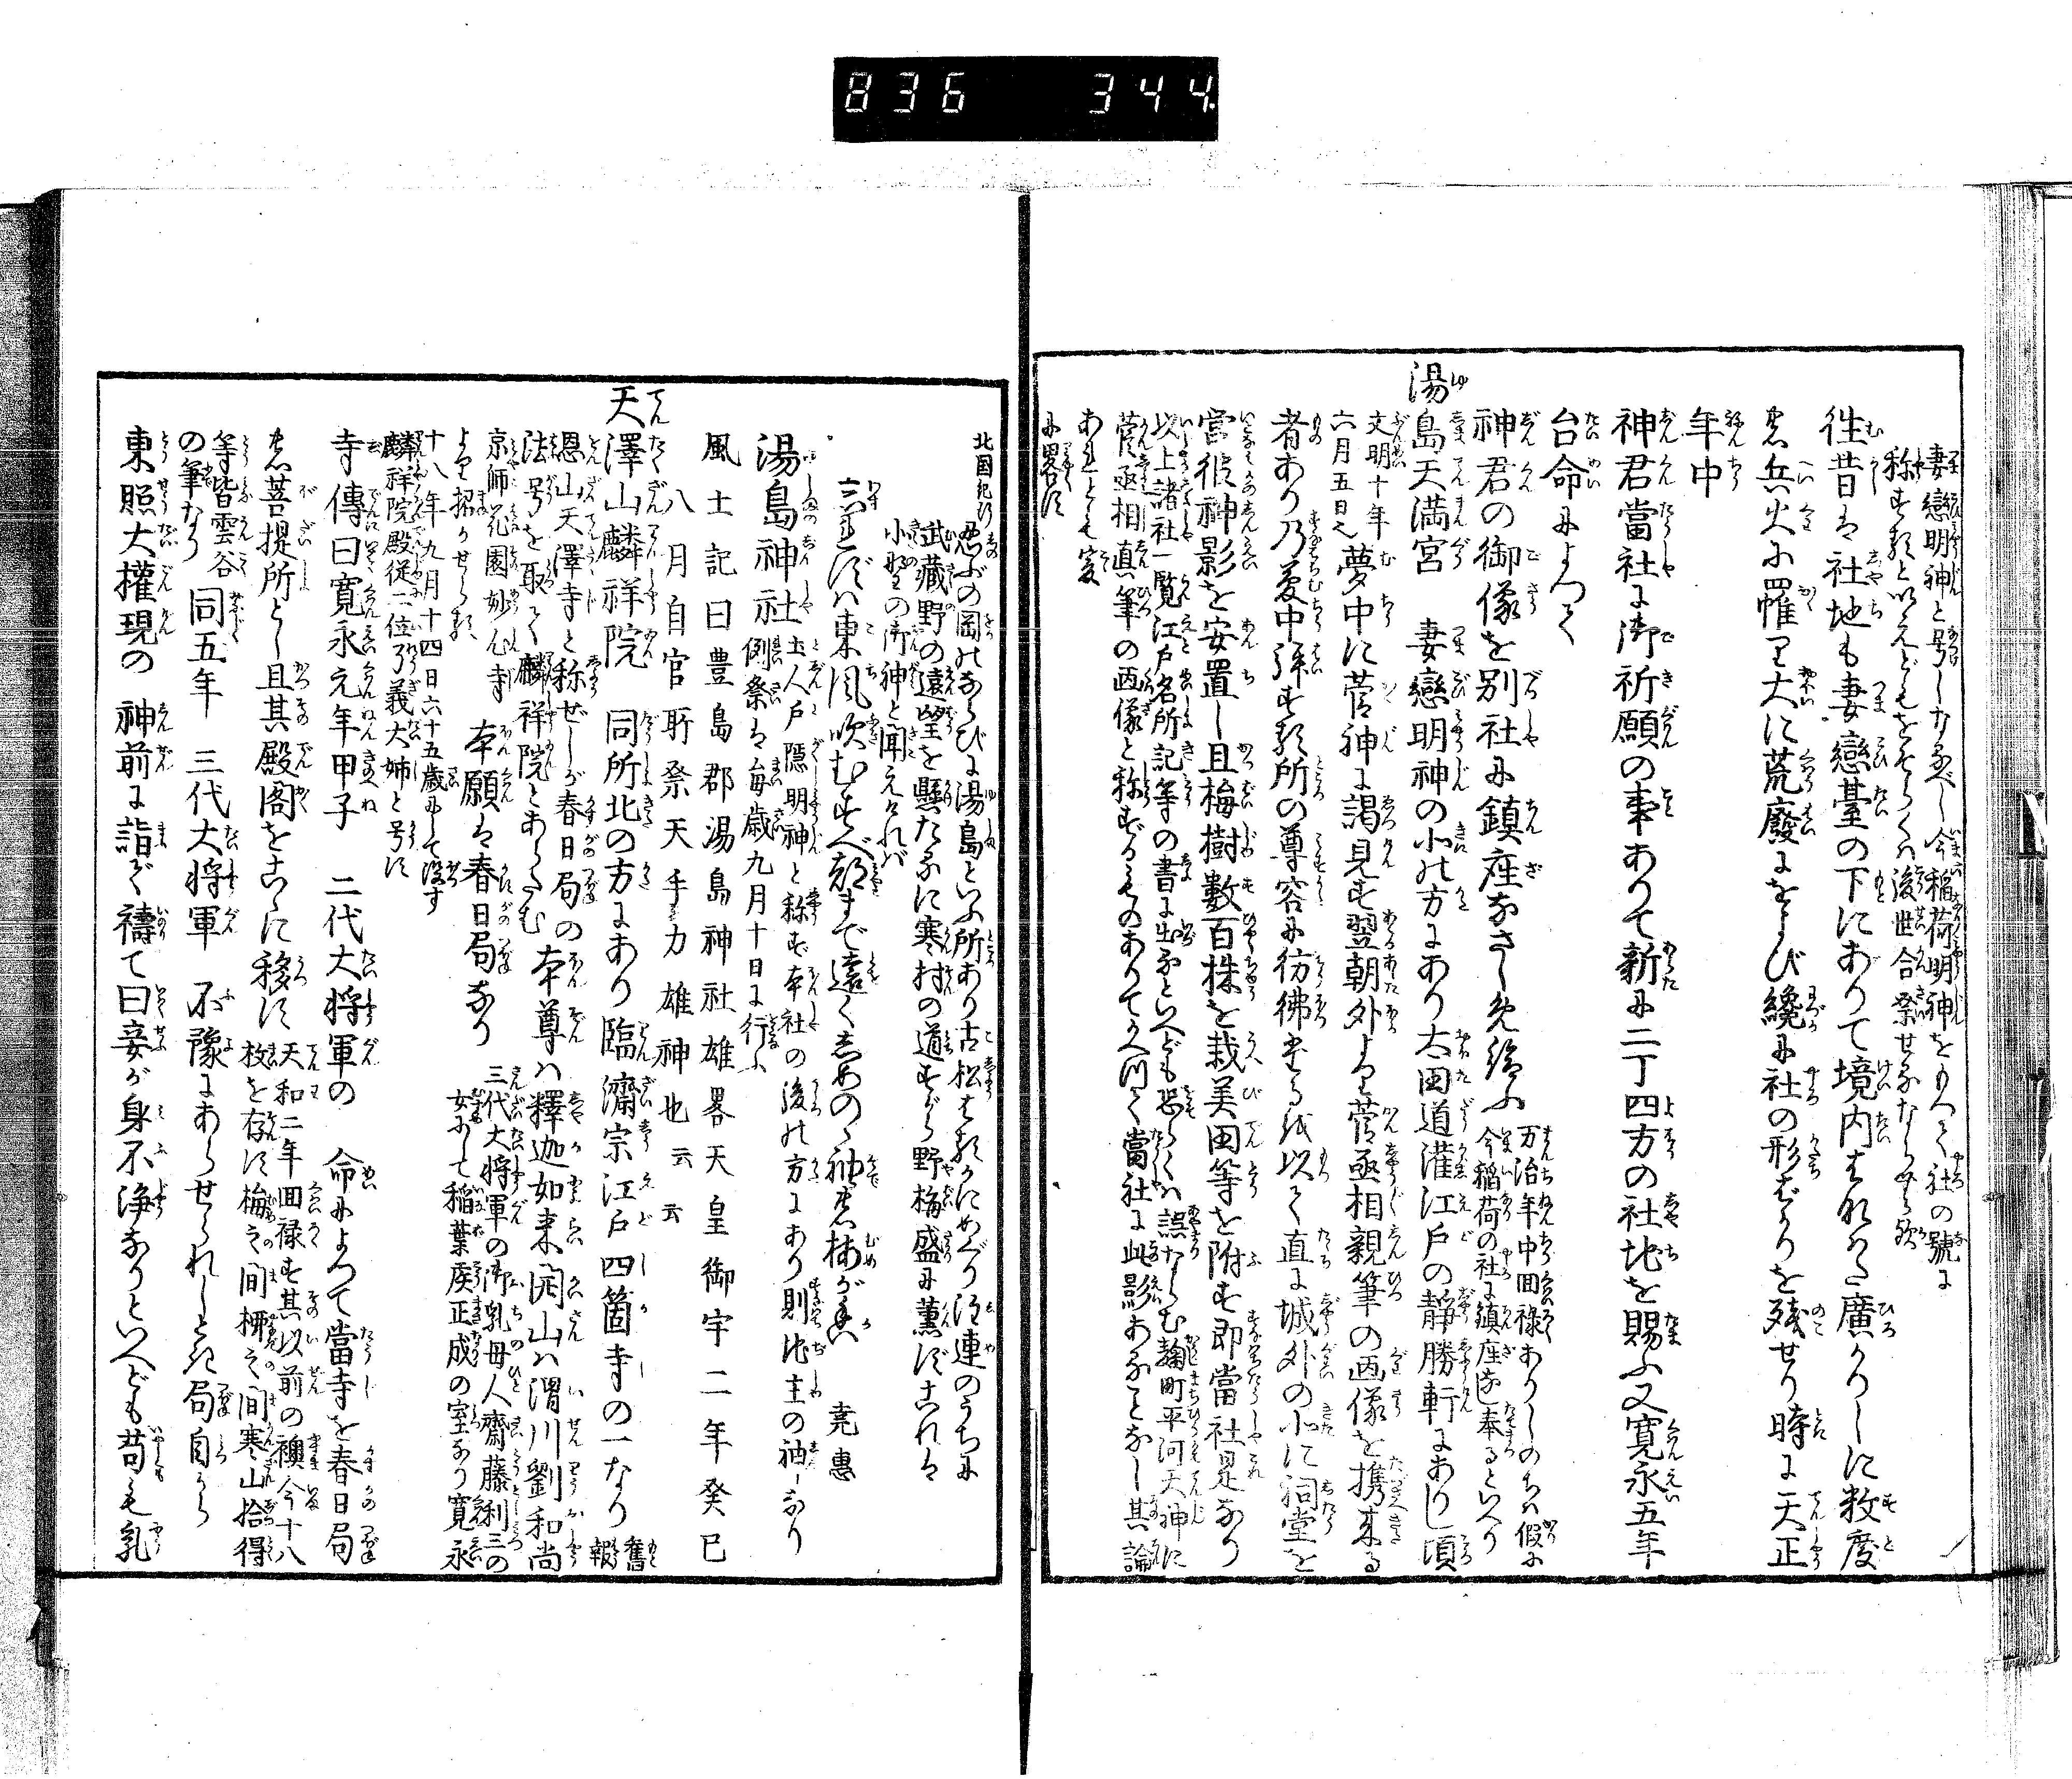 836 344
妻戀明神と号しなるべし今稲荷明神をもつて社の號に
称すると以へどもをそらくハ後世合祭せるならむ歟
徃昔は社地も妻戀臺の下にありて境内もれた廣かりしに数度
の兵火に罹り大に荒廢におよび纔に社の形ばかりを残せり時に天正
年中
神君當社に御祈願の事ありて新に二丁四方の社地を賜ふ又寛永五年
台命によつて
神君の御像を別社に鎮座なさしめ給ふ 万治年中囬禄ありしのちハ假に
今稲荷の社に鎮座なし奉るといへり
湯島天満宮 妻戀明神の北の方にあり太田道灌江戸の静勝軒にありし頃
文明十年
六月五日也
夢中に菅神に謁見す翌朝外より菅丞相親筆の画像を携来る
者あり乃夢中拝する所の尊容に彷彿たるを以て直に城外の北に祠堂を
営彼神影を安置し且梅樹數百株を栽美田等を附す即當社是なり
以上諸社一覧江戸名所記等の書に出るといへども恐らくハ誤ならむ麹町平河天神に
菅丞相真筆の画像と称するものありてかへつて當社に此影あることなし其論
あれども実
に畧す
北国紀行
忍ぶの岡のならびに湯島といふ所あり古松はるかにめぐり注連のうちに
武藏野の遠望を懸たるに寒村の道すがら野梅盛に薫ずこれは
小野の御神と聞えければ
忘れずハ東風吹むすべ都まで遠くしめの袖の梅がゝ 堯惠
湯島神社 土人戸隱明神と称す本社の後の方にあり則地主の神なり
例祭は毎歳九月十日に行ふ
風土記曰豊島郡湯島神社雄畧天皇御宇二年癸巳
八月自官所祭天手力雄神也云云
天澤山麟祥院 同所北の方にあり臨濟宗江戸四箇寺の一なり 舊
報
恩山天澤寺と称ぜしが春日局の
法号を取て麟祥院とあらたむ
本尊ハ釋迦如来開山ハ渭川劉和尚
京師花園妙心寺
より招かせらる
本願は春日局なり 三代大将軍の御乳母人齋藤利三の
女にして稲葉矦正成の室なり寛永
十八年九月十四日六十五歳にて没す
麟祥院殿従二位了義大姉と号す
寺傳曰寛永元年甲子 二代大将軍の 命によつて當寺を春日局
の菩提所とし且其殿閣をこゝに移す 天和二年囬禄す其以前の襖今十八
枚を存す梅之間柵之間寒山拾得
等皆雲谷
の筆なり
同五年 三代大将軍 不豫にあらせられしとき局自から
東照大權現の 神前に詣で禱て曰妾が身不浄なりといへども苟も乳